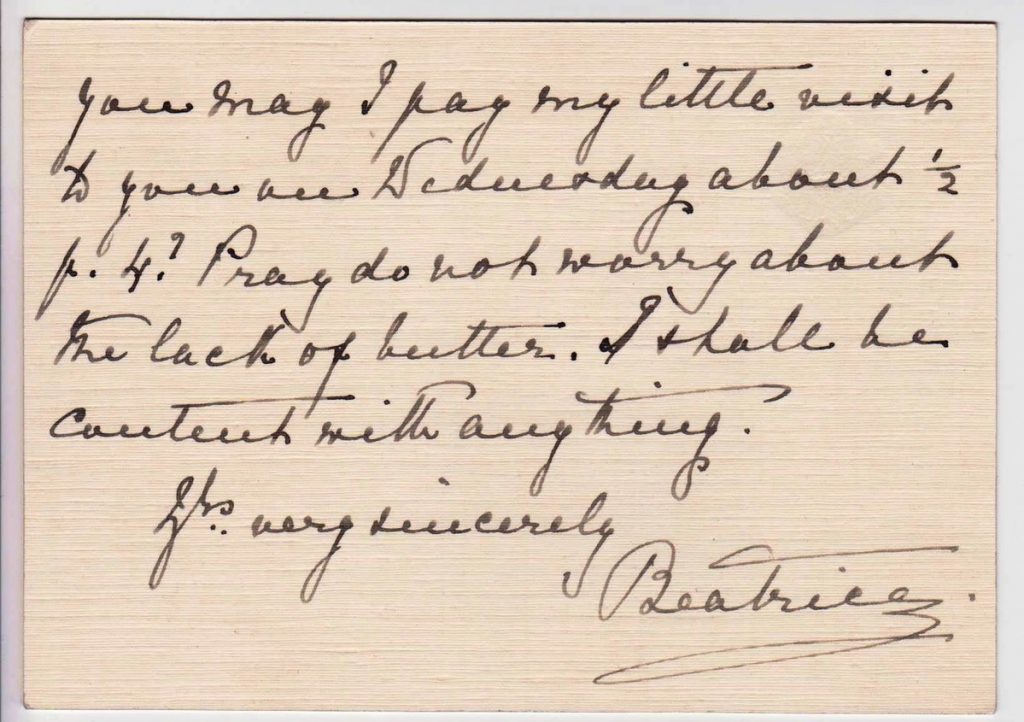 you may I pay my little visit
to you on Wednesday about ½
p. 4? Pray do not worry about
the lack of butter. I shall be
content with anything.
Yrs. very sincerely
Beatrice.